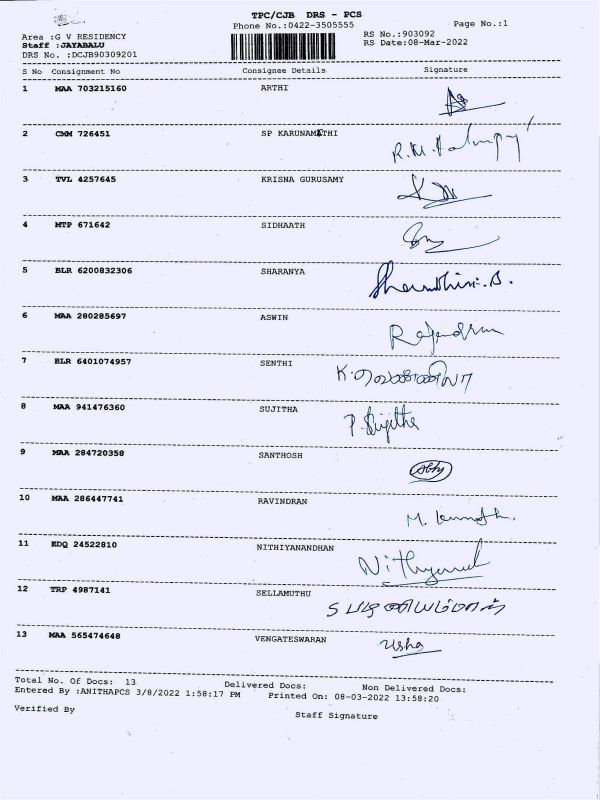 TPC/CJB DRS - PCS
Phone No.:0422-3505555 Page No.:1
Area :G V RESIDENCY RS No.:903092
Staff :JAYABALU RS Date:08-Mar-2022
DRS No. :DCJB90309201
S No Consignment No Consignee Details Signature
1 MAA 703215160 ARTHI
2 CMM 726451 SP KARUNAMATHI
3 TVL 4257645 KRISNA GURUSAMY
4 MTP 671642 SIDHAATH
5 BLR 6200832306 SHARANYA
6 MAA 280285697 ASWIN Rajendran
7 BLR 6401074957 SENTHI
8 MAA 941476360 SUJITHA P. Sujitha
9 MAA 284720358 SANTHOSH
10 MAA 286447741 RAVINDRAN
11 EDQ 24522810 NITHIYANANDHAN
12 TRP 4987141 SELLAMUTHU
13 MAA 565474648 VENGATESWARAN Usha
Total No. Of Docs: 13 Delivered Docs: Non Delivered Docs:
Entered By :ANITHAPCS 3/8/2022 1:58:17 PM Printed On: 08-03-2022 13:58:20
Verified By Staff Signature